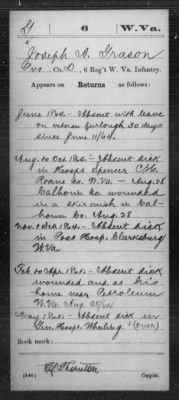 G | 6 | W. Va.
Joseph A. Grason
Pvt., Co. D, 6 Reg't W. Va. Infantry.
Appears on
Returns
as follows:
June 1864. - Absent with leave
on reenn furlough 30 days
since June 11/64.
Aug. to Oct 1864. - Absent sick
in Hosps Spencer C.H.
Roane Co. W.Va - Aug 28
Calhoun Co. wounded
in a skirmish in Cal-
houn Co. Aug. 28
Nov. & Dec 1864. - Absent sick
in Post Hosp. Clarksburg
W.Va.
Feb. to Apr. 1865 - Absent sick
wounded and at his
home near Petroleum
W. Va. Aug. 28/64
May 1865 - Absent sick in
Gen. Hosp. Wheeling (Over)
Book mark:
Thornton
(646)
Copyist.